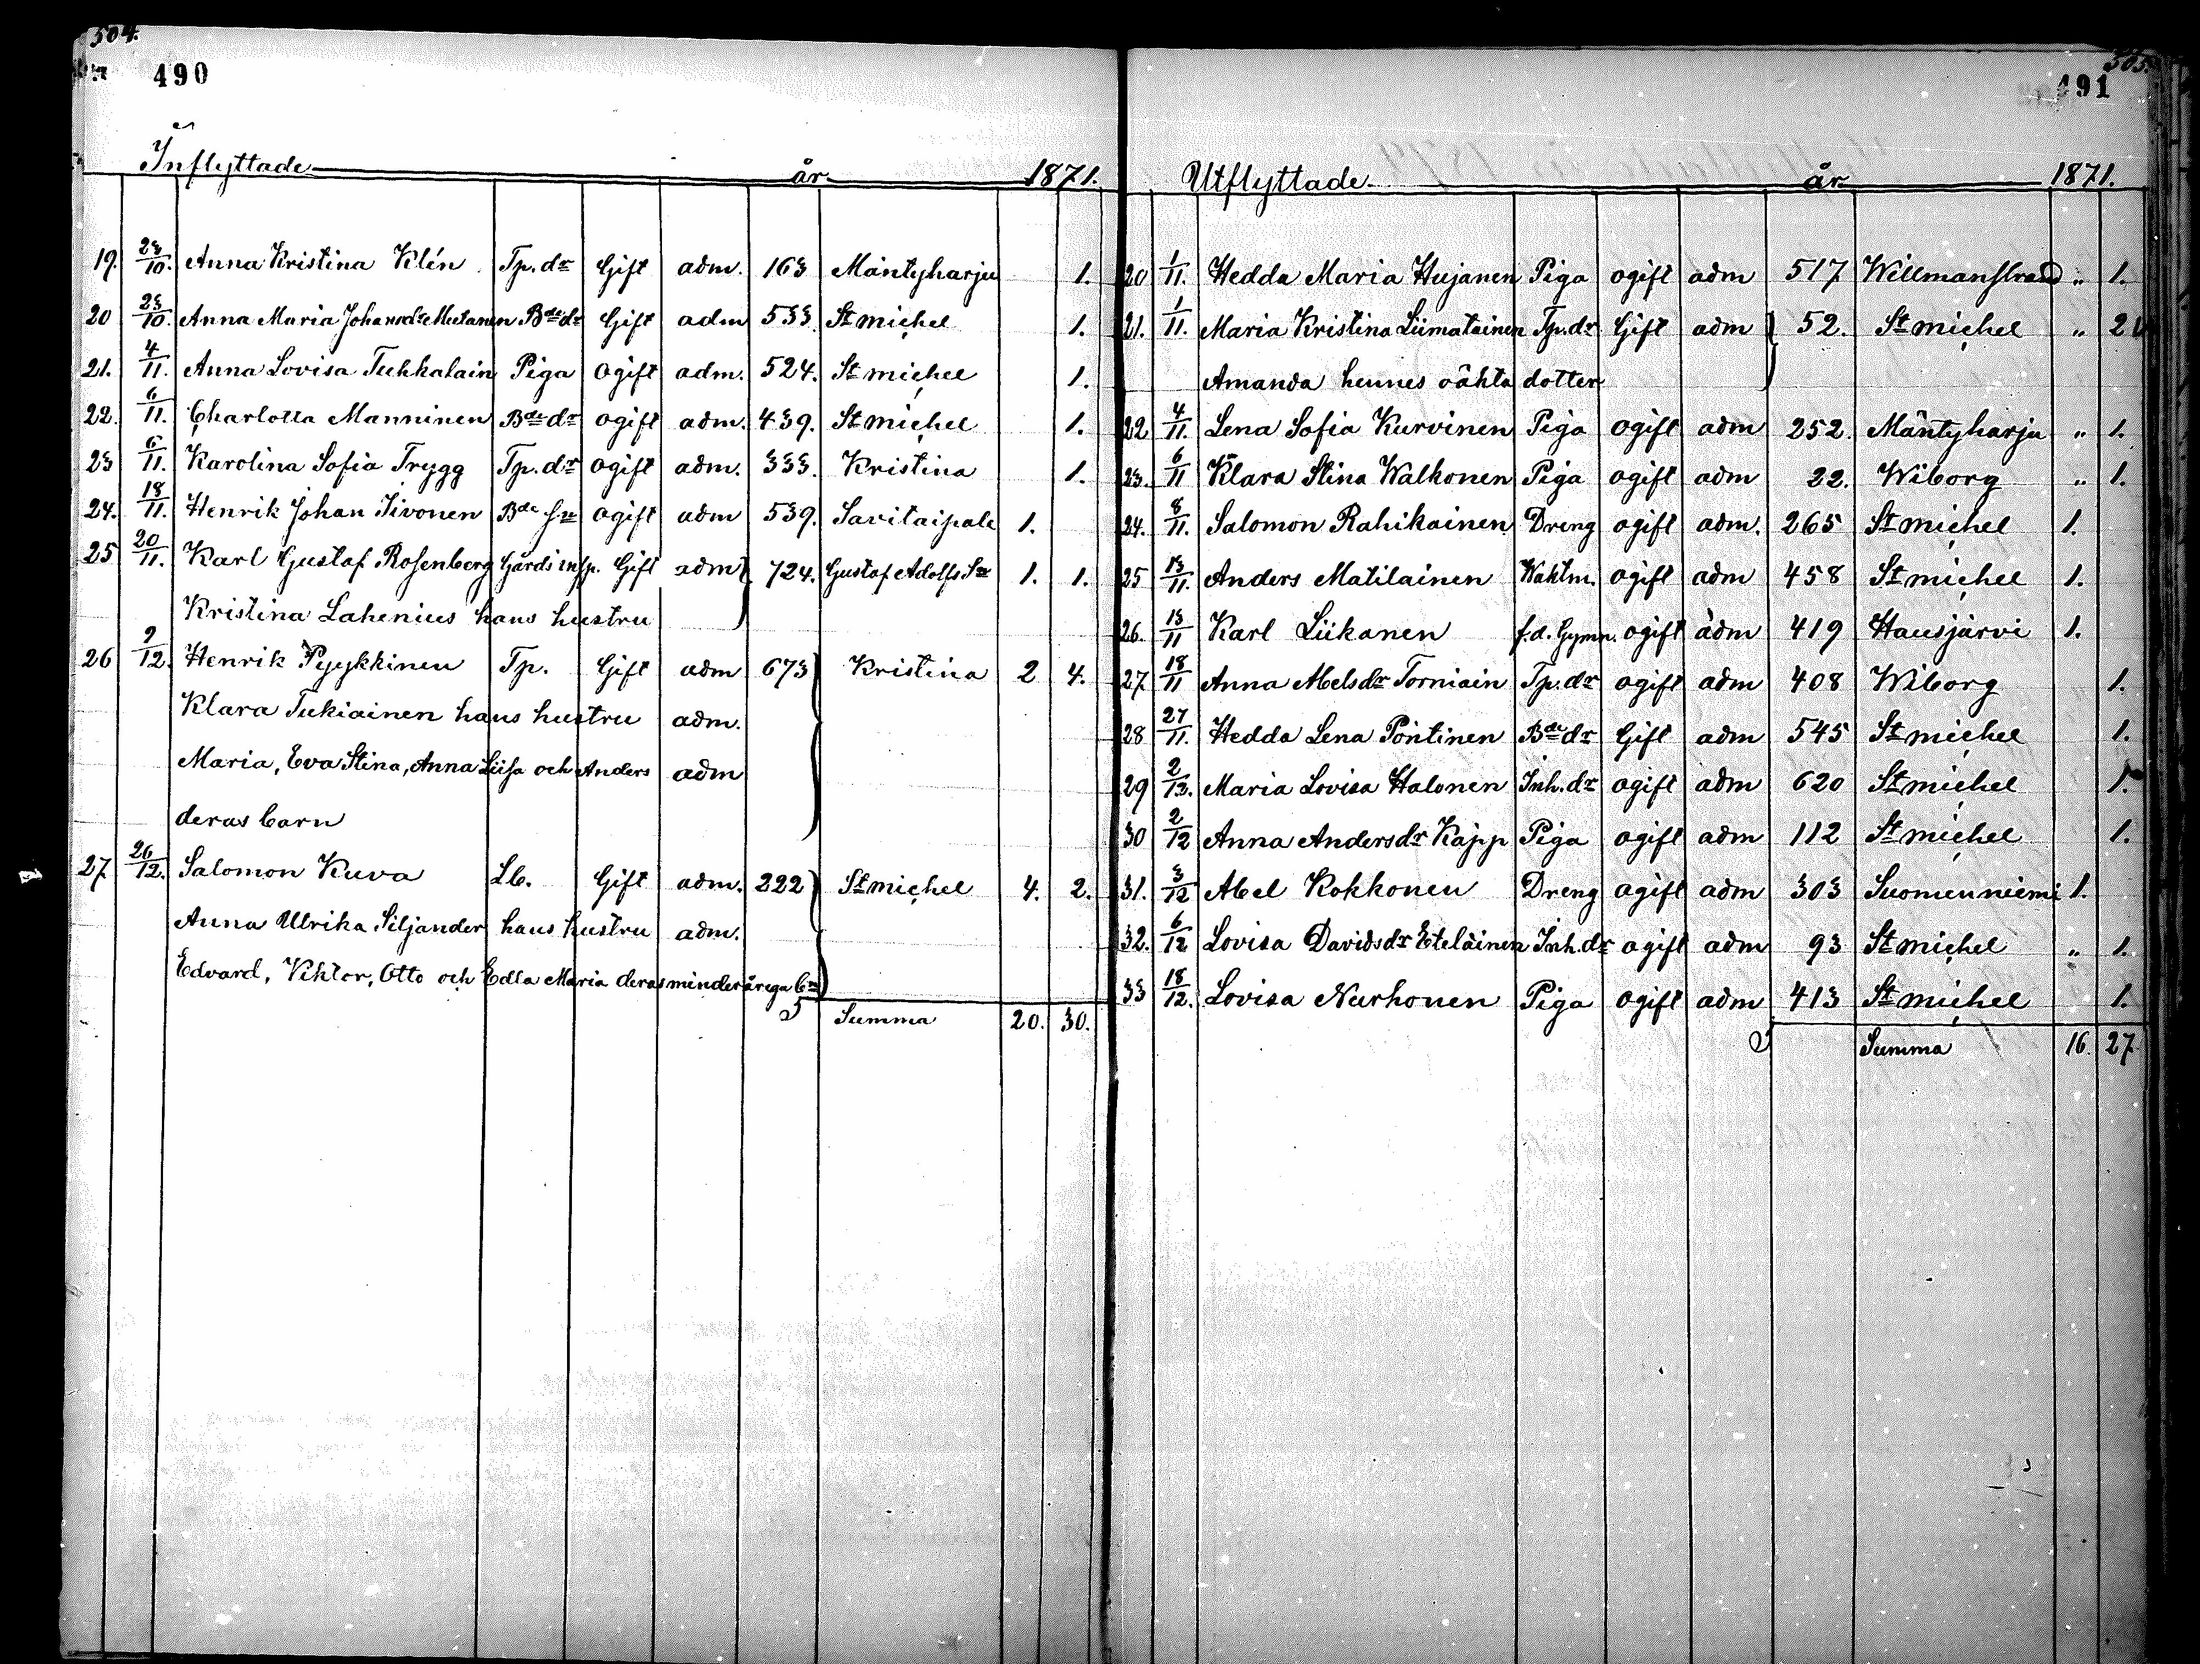 504.
490
Inflyttade år 1871.
19. 23/10. Anna Kristina Klén Tp. dr Gift adm. 163 Mäntyharju 1.
20 23/10. Anna Maria Johansdr Meetanen Bde dr Gift adm 533. St michel 1.
21. 4/11. Anna Lovisa Tuhkalain Piga ogift adm. 524. St michel 1.
22. 6/11. Charlotta Manninen Bde dr ogift adm. 439. St michel 1.
23 6/11. Karolina Sofia Trygg Tp. dr ogift adm. 333. Kristina 1.
24. 18/11. Henrik Johan Sivonen Bde sn ogift adm 539. Savitaipale 1.
25 20/11. Karl Gustaf Rosenberg Gårds insp. Gift adm 724. Gustaf Adolfs Sn 1. 1.
Kristina Lahenius hans hustru
26 9/12. Henrik Pyykkinen Tp. Gift adm 673 Kristina 2 4.
Klara Tukiainen hans hustru adm.
Maria, Eva Stina, Anna Liisa och Anders adm
deras barn
27. 26/12. Salomon Kuva Lb. Gift adm. 222 St michel 4. 2.
Anna Ulrika Siljander hans hustru adm.
Edvard, Viktor, Otto och Edla Maria deras minderårega bn
Summa 20. 30.
505.
491
Utflyttade år 1871.
20 1/11. Hedda Maria Hujanen Piga ogift adm 517 Willmanstrand " 1.
21. 1/11. Maria Kristina Liimatainen Tp. dr Gift adm 52. St michel " 2
Amanda hennes oäkta dotter
22 4/11. Lena Sofia Kurvinen Piga ogift adm 252. Mäntyharju " 1.
23. 6/11 Klara Stina Walkonen Piga ogift adm 22. Wiborg " 1.
24. 8/11. Salomon Rahikainen Dreng ogift adm. 265 St michel 1.
25 13/11. Anders Matilainen Vaktm. ogift adm 458 St michel 1.
26. 13/11 Karl Liikanen f.d. Gymn. ogift adm 419 Hausjärvi 1.
27. 18/11 Anna Abelsdr Torniain Tp. dr ogift adm 408 Wiborg 1.
28 27/11. Hedda Lena Pöntinen Bde dr Gift adm 545 St michel 1.
29 2/12. Maria Lovisa Halonen Inh. dr ogift adm 620 St michel 1.
30 2/12 Anna Andersdr Käpp Piga ogift adm 112 St michel 1.
31. 3/12 Abel Kokkonen Dreng ogift adm 303 Suomenniemi 1.
32. 6/12 Lovisa Davidsdr Eteläinen Inh. dr ogift adm 93 St michel " 1.
33 18/12. Lovisa Nurhonen Piga ogift adm 413 St michel 1.
Summa 16. 27